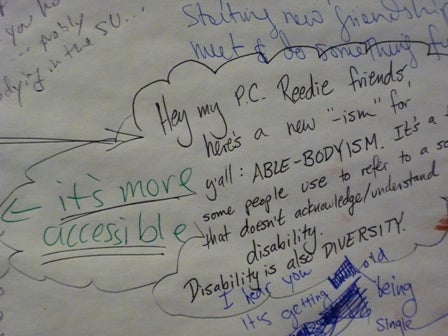 you
probly
dying in the SU...
Starting new friendship
meet & do something f
Hey my P.C. Reedie friends,
here's a new "-ism" for
y'all: ABLE-BODYISM. It's a t
some people use to refer to a so
that doesn't acknowledge/understand
disability.
Disability is also DIVERSITY.
← it's more
accessible
I hear you
it's getting old
being
single